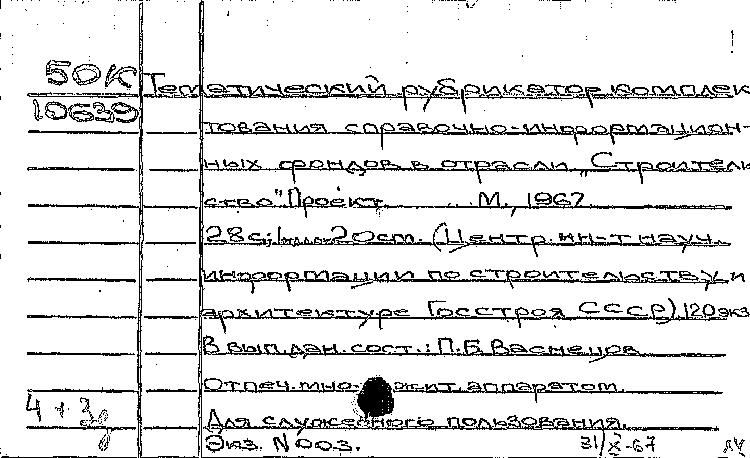 50К Тематический рубрикатор комплек
10639 тования справочно-информацион-
ных фондов в отрасли „Строитель
ство" Проект М., 1967.
28 с.; 20 см. (Центр. ин-т науч.
информации по строительству и
архитектуре Госстроя СССР) 120 экз
В вып. дан. сост.: П.Б. Васнецов
Отпеч. мно- жит. аппаратом.
4 + 3 Для служебного пользования.
Экз. N 003. 31/X-67